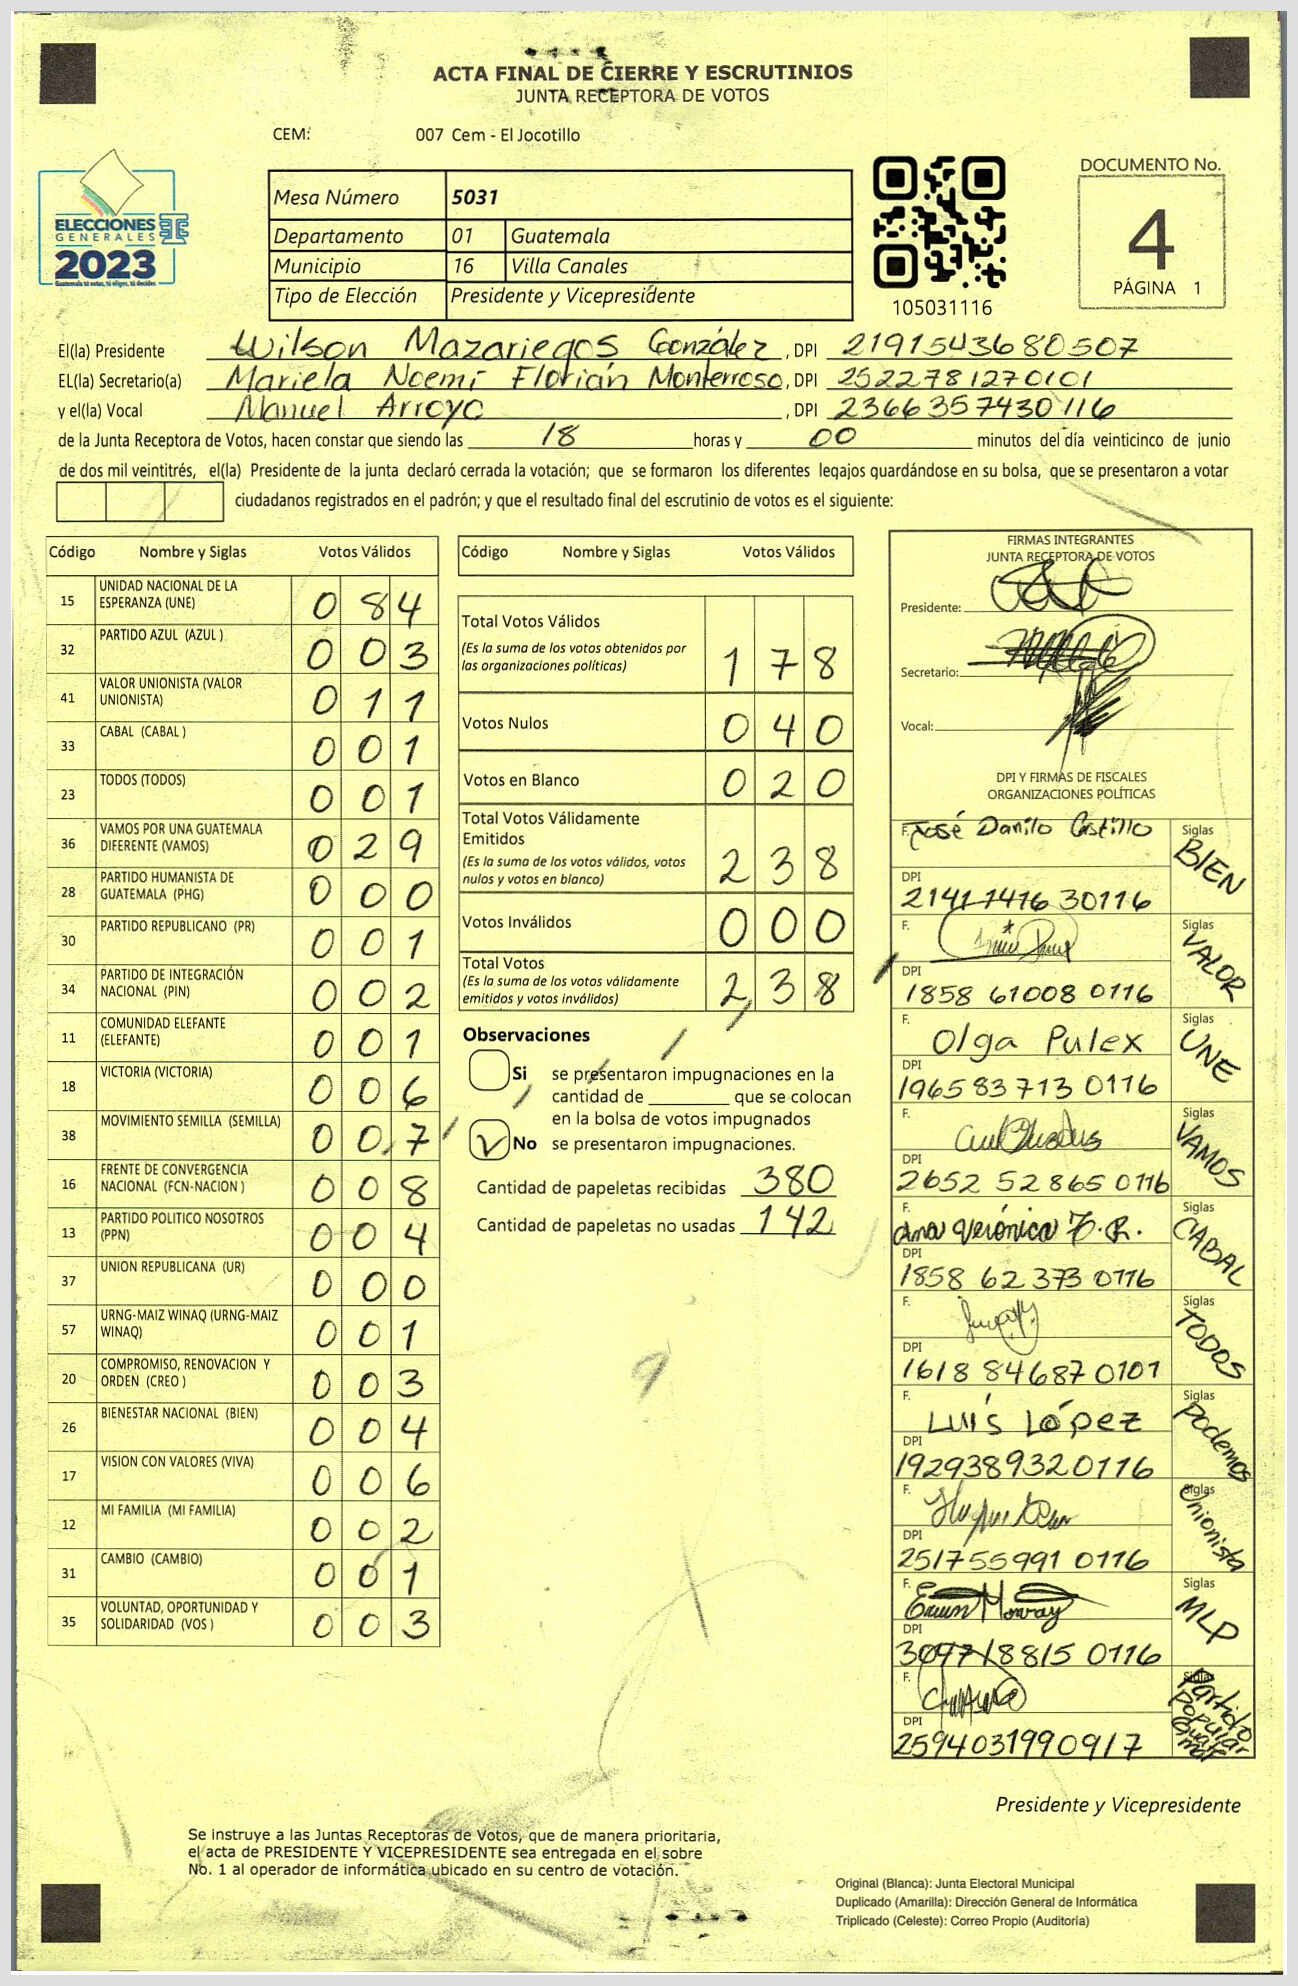 ACTA FINAL DE CIERRE Y ESCRUTINIOS
JUNTA RECEPTORA DE VOTOS
CEM: 007 Cem - El Jocotillo
ELECCIONES
GENERALES
2023
Guatemala tú votas, tú eliges, tú decides
Mesa Número 5031
Departamento 01 Guatemala
Municipio 16 Villa Canales
Tipo de Elección Presidente y Vicepresidente
105031116
DOCUMENTO No.
4
PÁGINA 1
El(la) Presidente Wilson Mazariegos González, DPI 2191543680507
EL(la) Secretario(a) Mariela Noemí Florián Monterroso, DPI 2522781270101
y el(la) Vocal Manuel Arroyo, DPI 2366357430116
de la Junta Receptora de Votos, hacen constar que siendo las 18 horas y 00 minutos del día veinticinco de junio
de dos mil veintitrés, el(la) Presidente de la junta declaró cerrada la votación; que se formaron los diferentes legajos guardándose en su bolsa, que se presentaron a votar
ciudadanos registrados en el padrón; y que el resultado final del escrutinio de votos es el siguiente:
Código Nombre y Siglas Votos Válidos
15 UNIDAD NACIONAL DE LA ESPERANZA (UNE) 0 8 4
32 PARTIDO AZUL (AZUL ) 0 0 3
41 VALOR UNIONISTA (VALOR UNIONISTA) 0 1 1
33 CABAL (CABAL ) 0 0 1
23 TODOS (TODOS) 0 0 1
36 VAMOS POR UNA GUATEMALA DIFERENTE (VAMOS) 0 2 9
28 PARTIDO HUMANISTA DE GUATEMALA (PHG) 0 0 0
30 PARTIDO REPUBLICANO (PR) 0 0 1
34 PARTIDO DE INTEGRACIÓN NACIONAL (PIN) 0 0 2
11 COMUNIDAD ELEFANTE (ELEFANTE) 0 0 1
18 VICTORIA (VICTORIA) 0 0 6
38 MOVIMIENTO SEMILLA (SEMILLA) 0 0 7
16 FRENTE DE CONVERGENCIA NACIONAL (FCN-NACION ) 0 0 8
13 PARTIDO POLITICO NOSOTROS (PPN) 0 0 4
37 UNION REPUBLICANA (UR) 0 0 0
57 URNG-MAIZ WINAQ (URNG-MAIZ WINAQ) 0 0 1
20 COMPROMISO, RENOVACION Y ORDEN (CREO ) 0 0 3
26 BIENESTAR NACIONAL (BIEN) 0 0 4
17 VISION CON VALORES (VIVA) 0 0 6
12 MI FAMILIA (MI FAMILIA) 0 0 2
31 CAMBIO (CAMBIO) 0 0 1
35 VOLUNTAD, OPORTUNIDAD Y SOLIDARIDAD (VOS ) 0 0 3
Código Nombre y Siglas Votos Válidos
Total Votos Válidos
(Es la suma de los votos obtenidos por
las organizaciones políticas) 1 7 8
Votos Nulos 0 4 0
Votos en Blanco 0 2 0
Total Votos Válidamente
Emitidos
(Es la suma de los votos válidos, votos
nulos y votos en blanco) 2 3 8
Votos Inválidos 0 0 0
Total Votos
(Es la suma de los votos válidamente
emitidos y votos inválidos) 2 3 8
Observaciones
Si se presentaron impugnaciones en la
cantidad de ________ que se colocan
en la bolsa de votos impugnados
No se presentaron impugnaciones.
Cantidad de papeletas recibidas 380
Cantidad de papeletas no usadas 142
9
FIRMAS INTEGRANTES
JUNTA RECEPTORA DE VOTOS
Presidente:
Secretario:
Vocal:
DPI Y FIRMAS DE FISCALES
ORGANIZACIONES POLÍTICAS
F. José Danilo Castillo Siglas BIEN
DPI 2141 1416 30116
F. Siglas VALOR
DPI 1858 61008 0116
F. Olga Pulex Siglas UNE
DPI 1965 83 713 0116
F. Siglas VAMOS
DPI 2652 52865 0116
F. Ana Verónica F. R. Siglas CABAL
DPI 1858 62 373 0116
F. Siglas TODOS
DPI 1618 84687 0101
F. Luís López Siglas Podemos
DPI 1929389320116
F. Siglas Unionista
DPI 251755991 0116
F. Siglas MLP
DPI 309718815 0116
F. Siglas Partido Popular
DPI 2594031990917
Presidente y Vicepresidente
Se instruye a las Juntas Receptoras de Votos, que de manera prioritaria,
el acta de PRESIDENTE Y VICEPRESIDENTE sea entregada en el sobre
No. 1 al operador de informática ubicado en su centro de votación.
Original (Blanca): Junta Electoral Municipal
Duplicado (Amarilla): Dirección General de Informática
Triplicado (Celeste): Correo Propio (Auditoría)